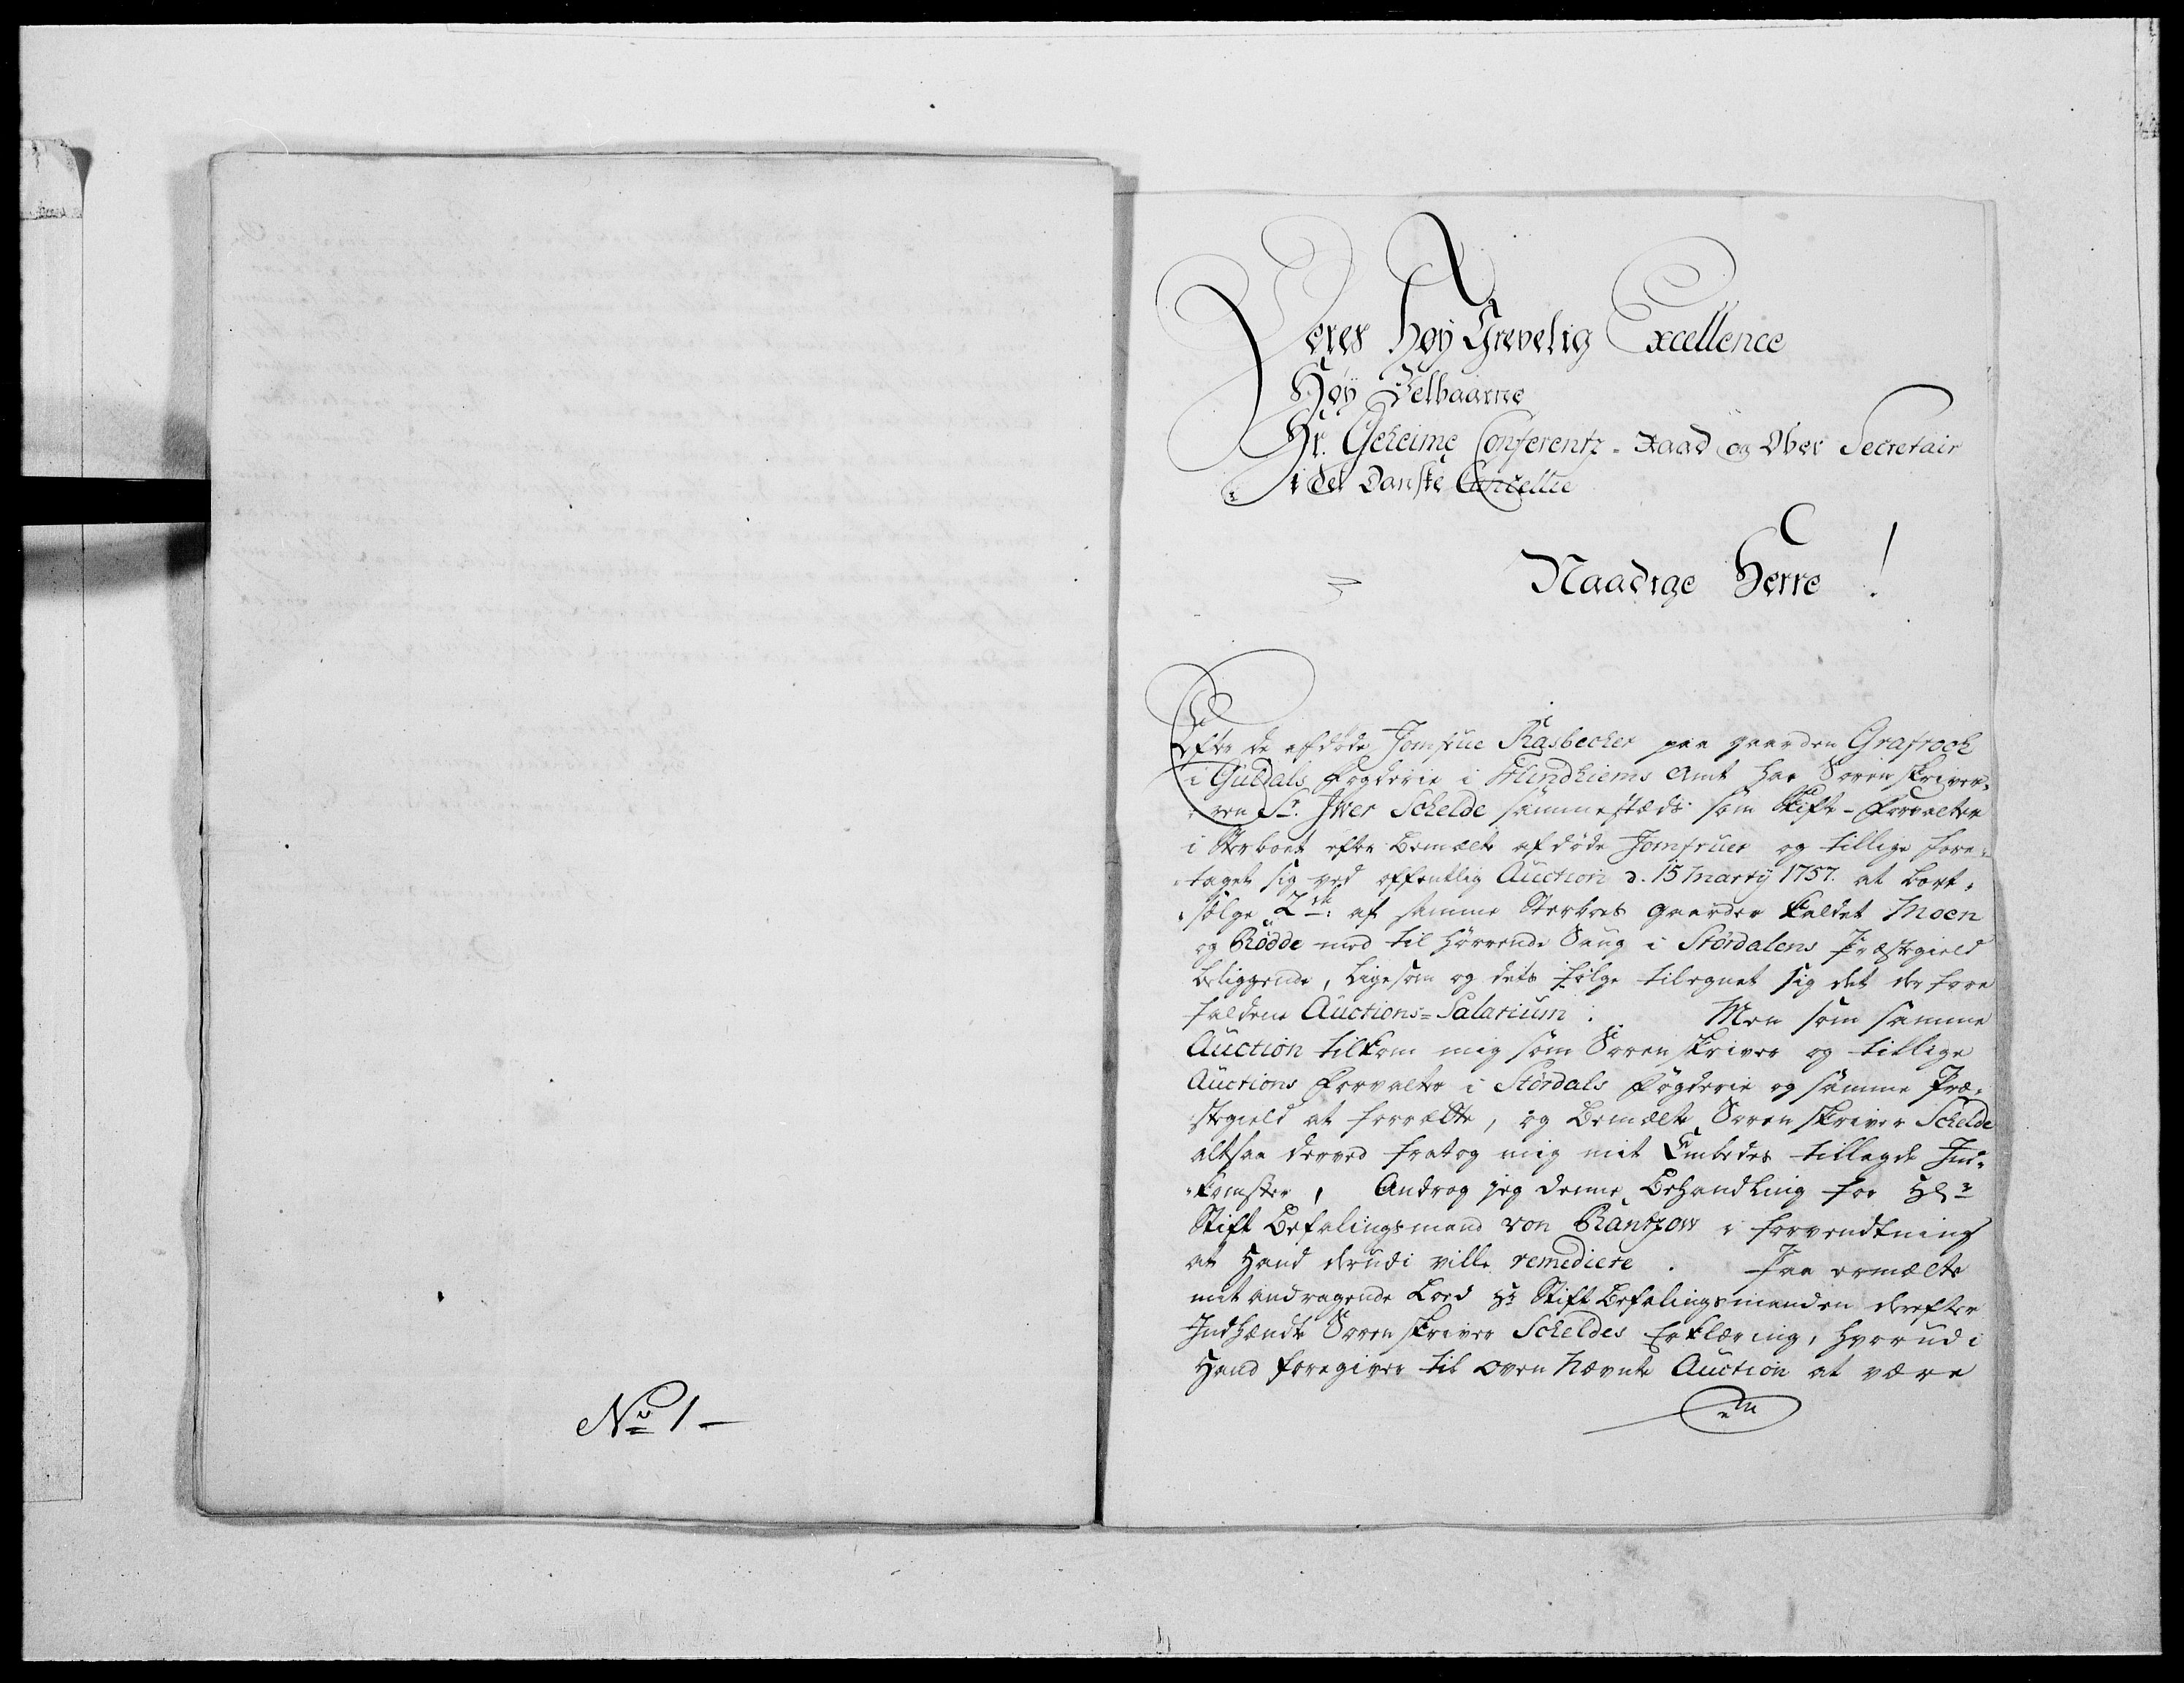 No 1
Deres Høy Grevelig Excellence
Høy Velbaarne
Hr. Geheime Conferentz-Raad og Ober Secretair
i det Danske Cancellie
Naadige Herre!
Efter de afdøde Jomfrue Rasbecher paa gaarden Grafrock
i Guldals Fogderie i Trundhiems Amt har Sorenskriver-
ren Sr. Iver Schelde sammestæds som Skifte-Forvalter
i Sterboet efter Bemælte afdøde Jomfruer og tillige fore-
taget sig ved offentlig Auction d. 15 Martij 1757. at bort-
sælge 2 af samme Sterboes gaarder kaldet Moen
og Rødde med til hørrende Saug i Størdalens Præstegield
beliggende, ligesom og dets følge tilegnet sig det derfore
faldene Auctions-Salarium. Men som samme
Auction tilkom mig som Sorenskriver og tillige
Auctions Forvalter i Størdals Fogderie og samme Præ-
stegield at forrætte, og Bemælte Sorenskriver Schelde
altsaa derved fratog mig mit Embedes tillagde Ind-
komster, Androg jeg denne Behandling for Hr
Stift Befalingsmand von Rantzow i forvendtning
at Hand derudi ville remediere. Paa ermælte
mit andragende Lood Hr Stift Befalingsmanden derefter
Indhændte Sorenskriver Scheldes Erklæring, hvorudi
Hand foregiver til oven Nævnte Auction at være